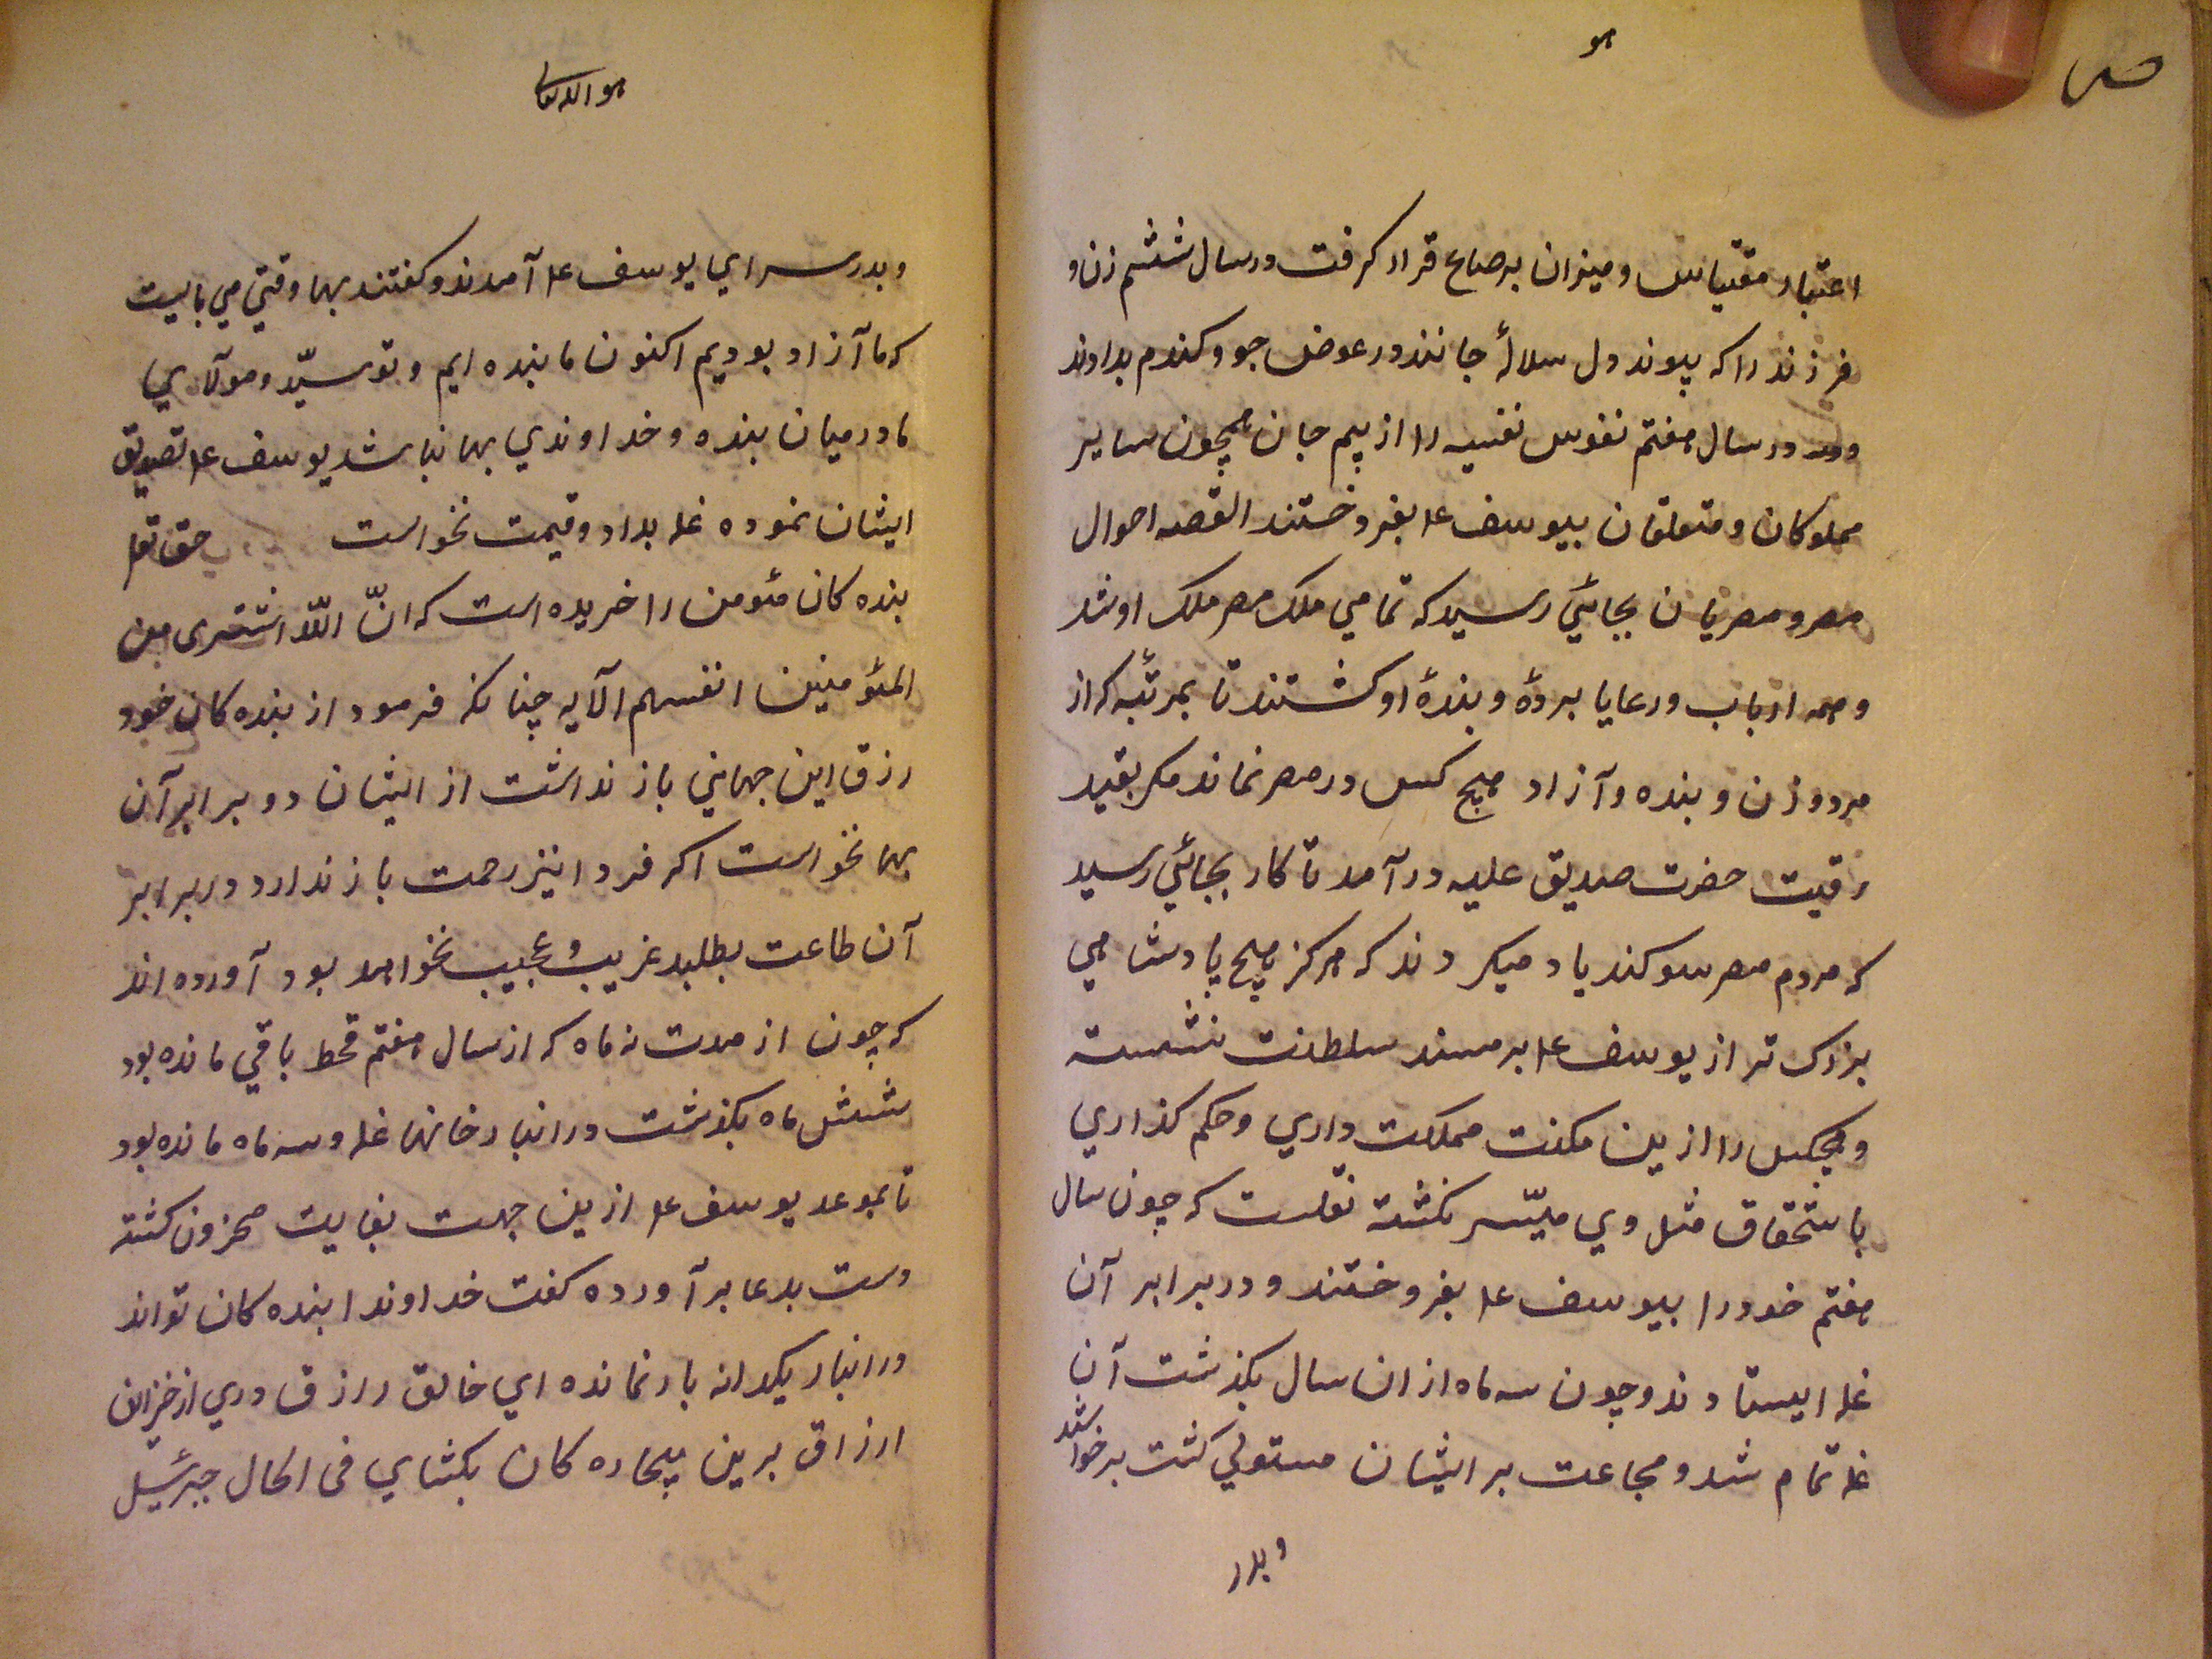 هو
اعتبار مقیاس و میزان بر صاع قرار کرفت در سال ششم زن و
فرزند را که پیوند دل سلالهٔ جانند در عوض جو و کندم بدادند
و در سال هفتم نفوس نفیسه را از بیم جان همچون سایر
مملوکان و متعلقان بیوسف ع بفروختند القصه احوال
مصر و مصریان بجائی رسید که تمامی ملک مصر ملک او شد
و همه ارباب و رعایا بردهٔ و بندهٔ او کشتند تا بمرتبهٔ که از
مرد و زن و بنده و آزاد هیچ کس در مصر نماند مکر بقید
رقیت حضرت صدیق علیه در آمد تا کار بجائی رسید
که مردم مصر سوکند یاد میکردند که هرکز هیچ پادشاهی
بزرک تر از یوسف ع بر مسند سلطنت ننشسته
و هیچکس را ازین مکنت مملکت داری و حکم کذاری
باستحقاق مثل وی میسّر نکشته نقلست که چون سال
هفتم خود را بیوسف ع بفروختند و در برابر آن
غله ایستادند و چون سه ماه از ان سال بکذشت آن
غله تمام شد و مجاعت بر ایشان مستولی کشت برخواستند
و بدر
هو الله تعالی
و بدر سرای یوسف ع آمدند و کفتند بها وقتی می بایست
که ما آزاد بودیم اکنون ما بنده ایم و تو سیّد و مولای
ما در میان بنده و خداوندی بها نباشد یوسف ع تصدیق
ایشان نموده غله بداد و قیمت نخواست حق تعا
بنده کان مئومن را خریده است که انّ اللّه اشتری من
المئومنین انفسهم الآیه چنانکه فرمود از بنده کان خود
رزق این جهانی باز نداشت از ایشان در برابر آن
بها نخواست اکر فردا نیز رحمت باز ندارد در برابر
آن طاعت بطلبد غریب و عجیب نخواهد بود آورده اند
که چون از مدت نه ماه که از سال هفتم قحط باقی مانده بود
شش ماه بکذشت در انبار خانها غله و سه ماه مانده بود
تا بموعد یوسف ع ازین جهت بغایت محزون کشته
دست بدعا برآورده کفت خداوندا بنده کان تواند
در انبار یکدانه بار نمانده ای خالق رازق دری از خزاین
ارزاق برین بیچاره کان بکشای فی الحال جبرئیل